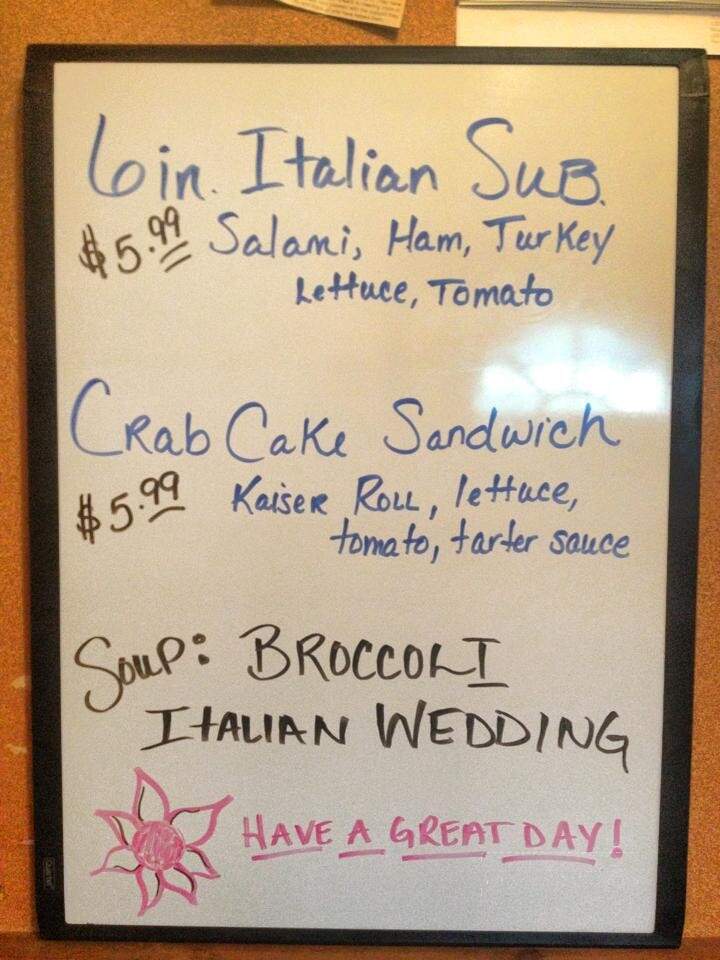 6in. Italian Sub.
$5.99 Salami, Ham, Turkey
Lettuce, Tomato
Crab Cake Sandwich
$5.99 Kaiser Roll, lettuce,
tomato, tarter sauce
Soup: BROCCOLI
ITALIAN WEDDING
HAVE A GREAT DAY!